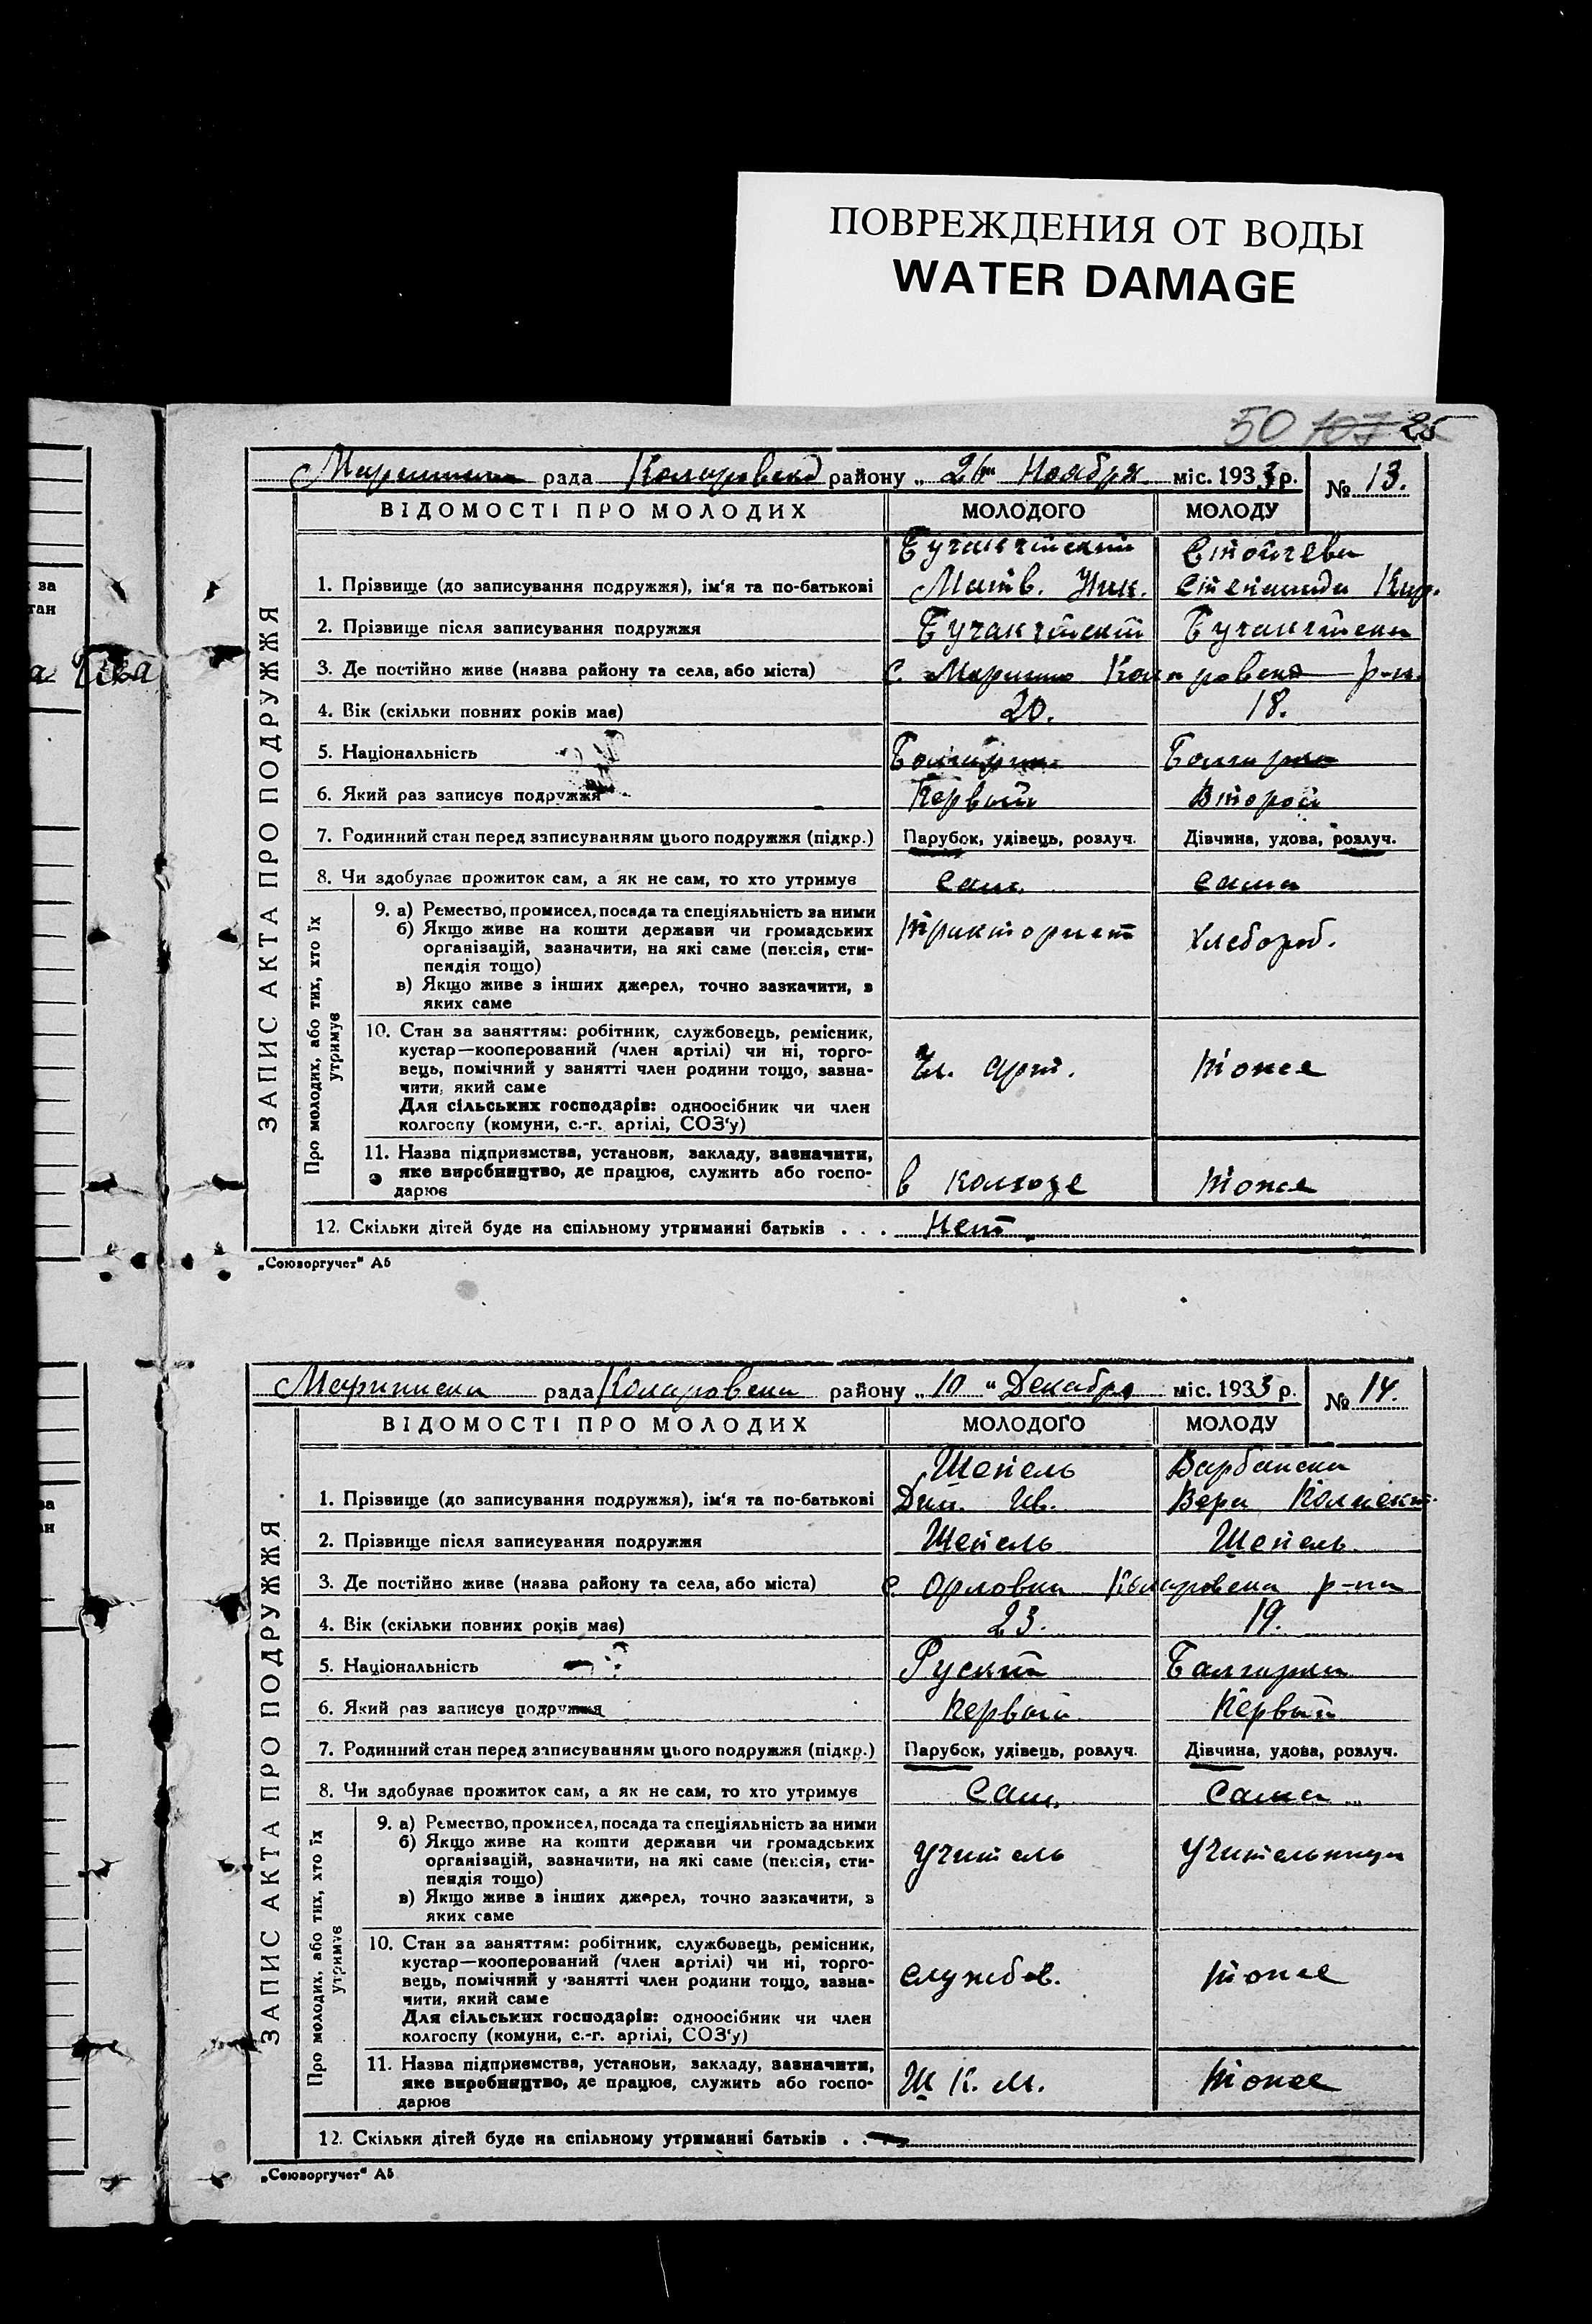 ПОВРЕЖДЕНИЯ ОТ ВОДЫ
WATER DAMAGE
50 107 25
за
тан
рада району „ 26 " Ноября міс. 1933 р. № 13.
ВІДОМОСТІ ПРО МОЛОДИХ МОЛОДОГО МОЛОДУ
ЗАПИС АКТА ПРО ПОДРУЖЖЯ
Стойчева
1. Прізвище (до записування подружжя), ім'я та по-батькові Матв. Ник. Степанида Кир.
2. Прізвище після записування подружжя
3. Де постійно живе (назва району та села, або міста) с р-на
4. Вік (скільки повних років має) 20. 18.
5. Національність Болгарин Болгарка
6. Який раз записує подружжя Первый Второй
7. Родинний стан перед записуванням цього подружжя (підкр.) Парубок, удівець, розлуч. Дівчина, удова, розлуч.
8. Чи здобуває прожиток сам, а як не сам, то хто утримує сам. сама
Про молодих, або тих, хто їх утримує
9. а) Ремество, промисел, посада та спеціяльність за ними
б) Якщо живе на кошти держави чи громадських Тракторист Хлебороб.
організацій, зазначити, на які саме (пенсія, сти-
пендія тощо)
в) Якщо живе з інших джерел, точно зазначити, з
яких саме
10. Стан за заняттям: робітник, службовець, ремісник,
кустар—кооперований (член артілі) чи ні, торго-
вець, помічний у занятті член родини тощо, зазна- Чл. арт. тоже
чити, який саме
Для сільських господарів: одноосібник чи член
колгоспу (комуни, с.-г. артілі, СОЗ'у)
11. Назва підприємства, установи, закладу, зазначити,
яке виробництво, де працює, служить або госпо- в колхозе тоже
дарює
12. Скільки дітей буде на спільному утриманні батьків . . . Нет
„Союзоргучет" А5
рада Коларовска району „ 10 " Декабря міс. 1933 р. № 14.
ВІДОМОСТІ ПРО МОЛОДИХ МОЛОДОГО МОЛОДУ
ЗАПИС АКТА ПРО ПОДРУЖЖЯ
Шепель Варбанска
1. Прізвище (до записування подружжя), ім'я та по-батькові Ив. Вера
2. Прізвище після записування подружжя Шепель Шепель
3. Де постійно живе (назва району та села, або міста) с Орловка Коларовска р-на
4. Вік (скільки повних років має) 23. 19.
5. Національність Руский Балгарка
6. Який раз записує подружжя Первый Первый
7. Родинний стан перед записуванням цього подружжя (підкр.) Парубок, удівець, розлуч. Дівчина, удова, розлуч.
8. Чи здобуває прожиток сам, а як не сам, то хто утримує Сам, Сама
Про молодих, або тих, хто їх утримує
9. а) Ремество, промисел, посада та спеціяльність за ними
б) Якщо живе на кошти держави чи громадських Учитель Учительница
організацій, зазначити, на які саме (пенсія, сти-
пендія тощо)
в) Якщо живе з інших джерел, точно зазначити, з
яких саме
10. Стан за заняттям: робітник, службовець, ремісник,
кустар—кооперований (член артілі) чи ні, торго-
вець, помічний у занятті член родини тощо, зазна- служб. тоже
чити, який саме
Для сільських господарів: одноосібник чи член
колгоспу (комуни, с.-г. артілі, СОЗ'у)
11. Назва підприємства, установи, закладу, зазначити,
яке виробництво, де працює, служить або госпо- Ш К. М. тоже
дарює
12. Скільки дітей буде на спільному утриманні батьків . .
„Союзоргучет" А5